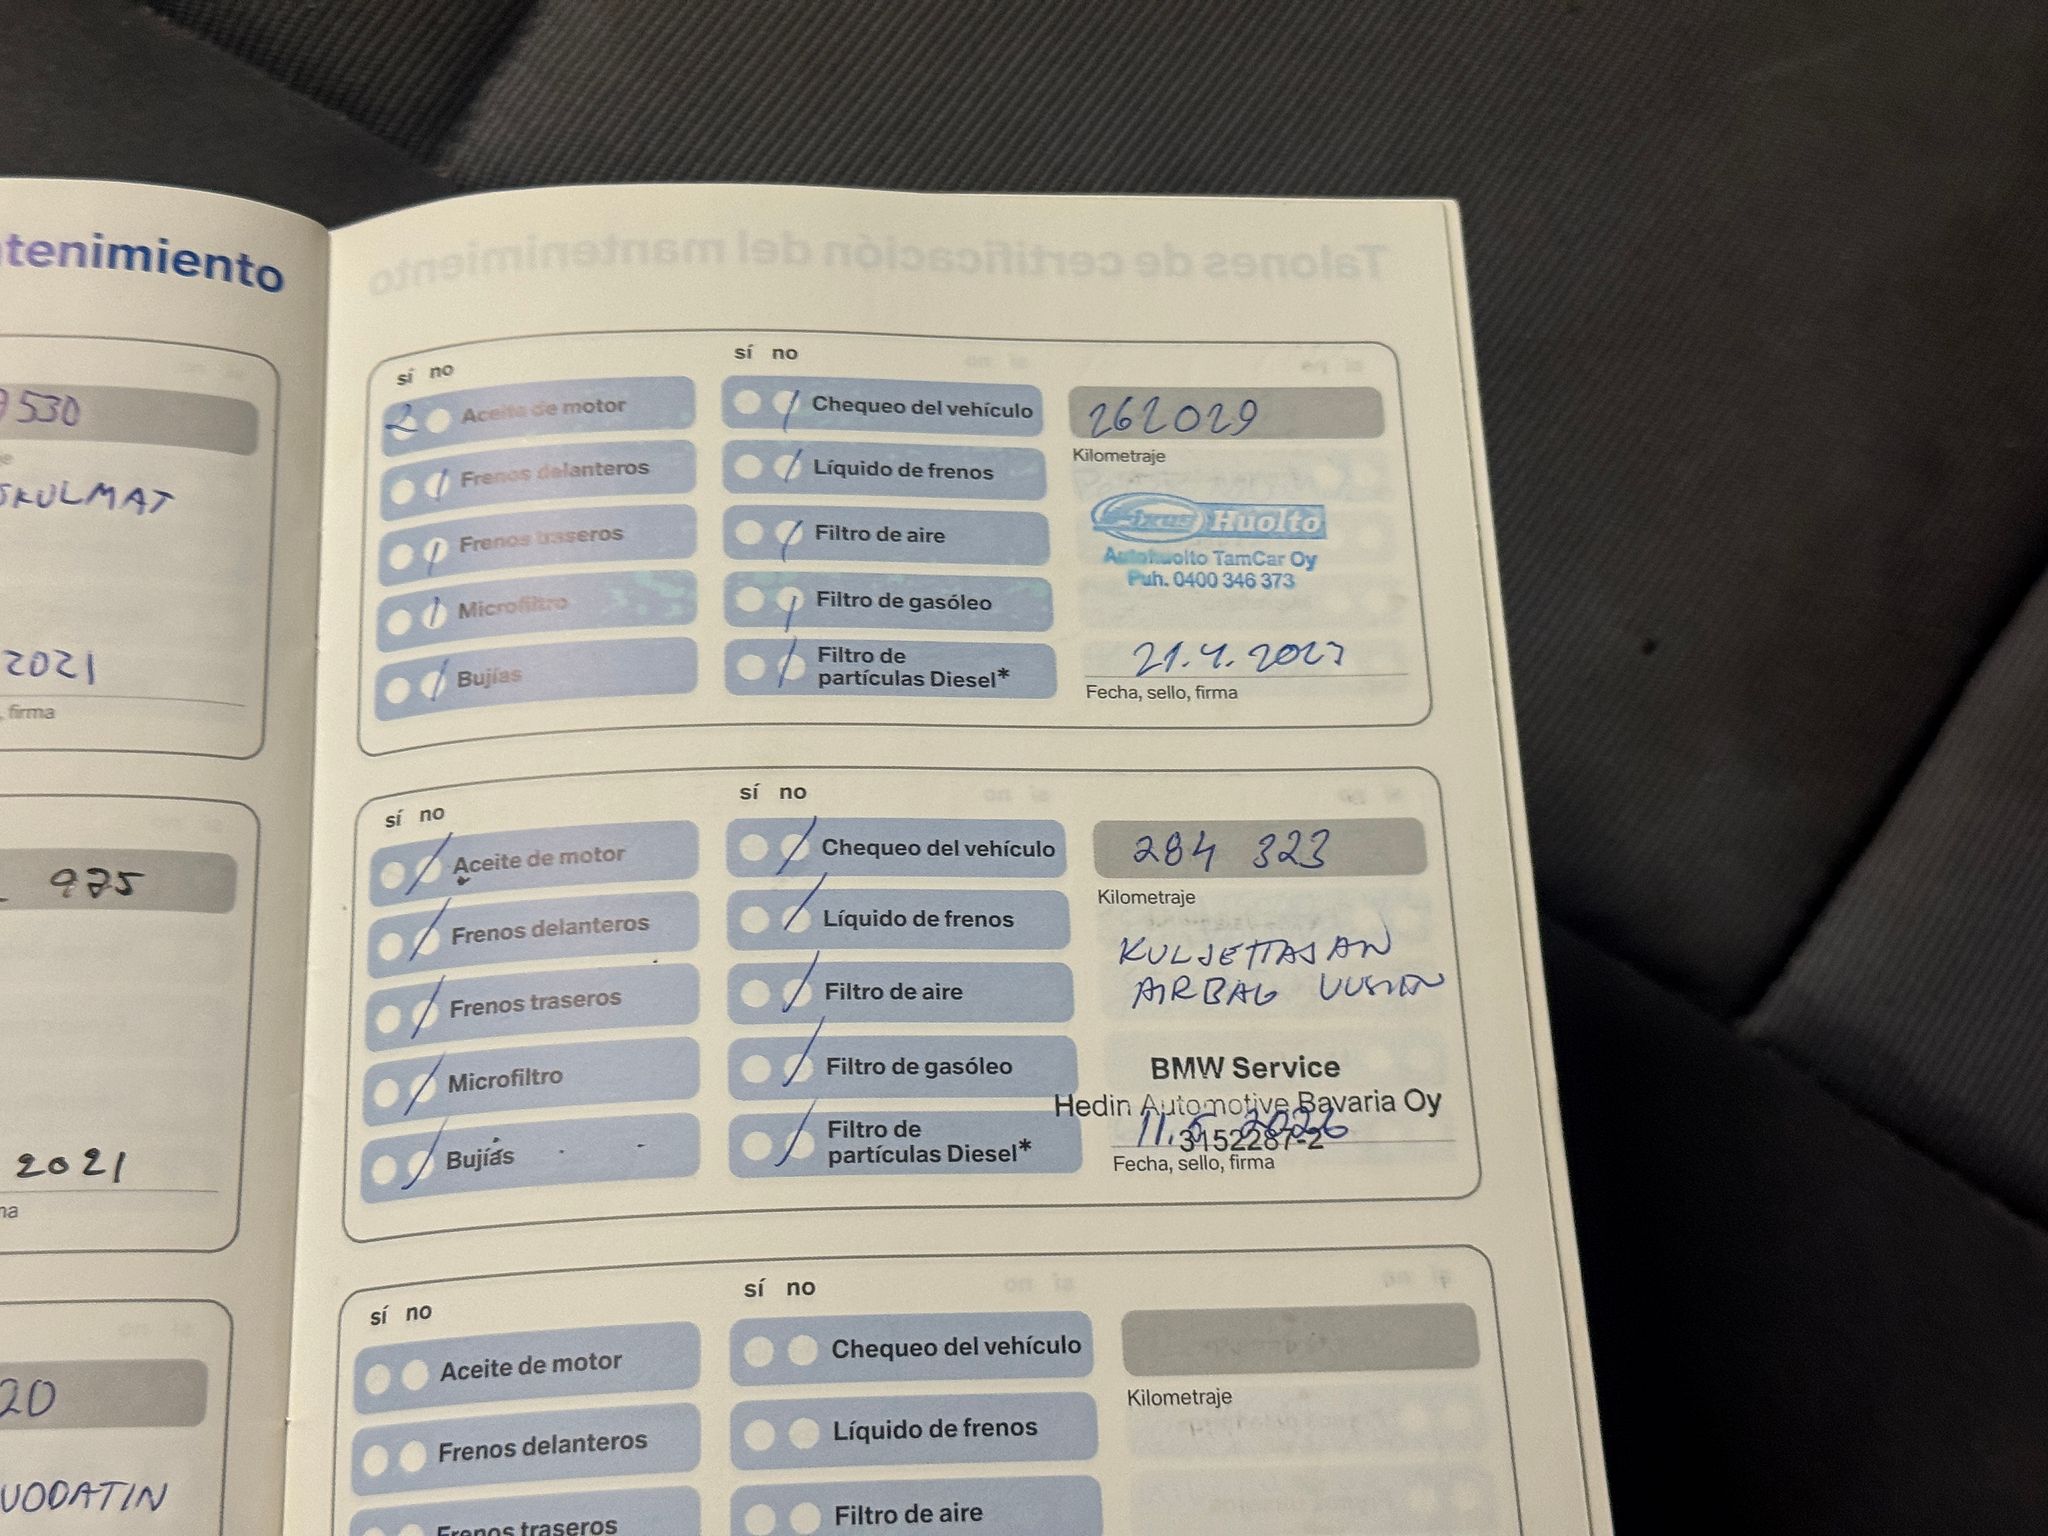 tenimiento
530
SKULMAT
2021
, firma
975
2021
20
VODATIN
Talones de certificación del mantenimiento
sí no
2 Aceite de motor
Frenos delanteros
Frenos traseros
Microfiltro
Bujías
sí no
Chequeo del vehículo
Líquido de frenos
Filtro de aire
Filtro de gasóleo
Filtro de
partículas Diesel*
262029
Kilometraje
Fixus Huolto
Autohuolto TamCar Oy
Puh. 0400 346 373
21.4.2023
Fecha, sello, firma
sí no
Aceite de motor
Frenos delanteros
Frenos traseros
Microfiltro
Bujías
sí no
Chequeo del vehículo
Líquido de frenos
Filtro de aire
Filtro de gasóleo
Filtro de
partículas Diesel*
284 323
Kilometraje
KULJETTAJAN
AIRBAG UUSITTU
BMW Service
Hedin Automotive Bavaria Oy
3152287-2
Fecha, sello, firma
sí no
Aceite de motor
Frenos delanteros
Frenos traseros
sí no
Chequeo del vehículo
Líquido de frenos
Filtro de aire
Kilometraje